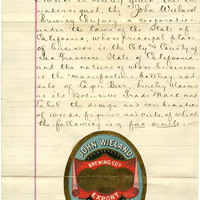 undersigned, the "John Wieland
Brewing Company" a corporation
under the laws of the State of
California, whose principal place
of business is the City & County of
San Francisco, State of California
and the nature of whose business
is the manufacture, bottling, and
sale of Lager Beer, hereby claims
as its exclusive Trade Mark and
Label the design and combination
of words, figures, and cuts, of which
the following is fac simile:
JOHN WIELAND
BREWING CO'S
EXPORT